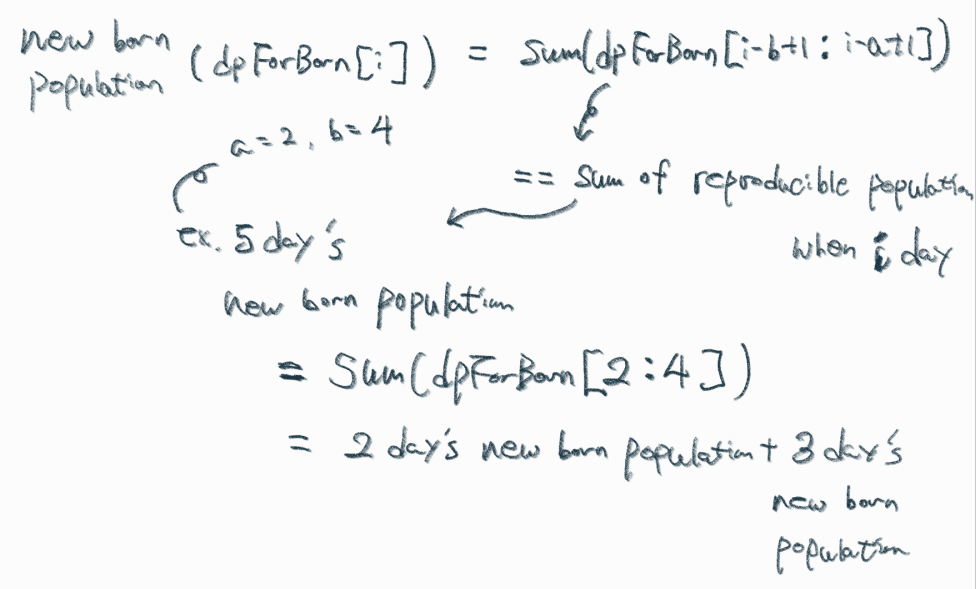 new born population (dpForBorn[i]) = Sum(dpForBorn[i-b+1 : i-a+1])
a=2, b=4
== Sum of reproducible population
when i day
ex. 5 day's
new born population
= Sum(dpForBorn[2:4])
= 2 day's new born population + 3 day's
new born
population